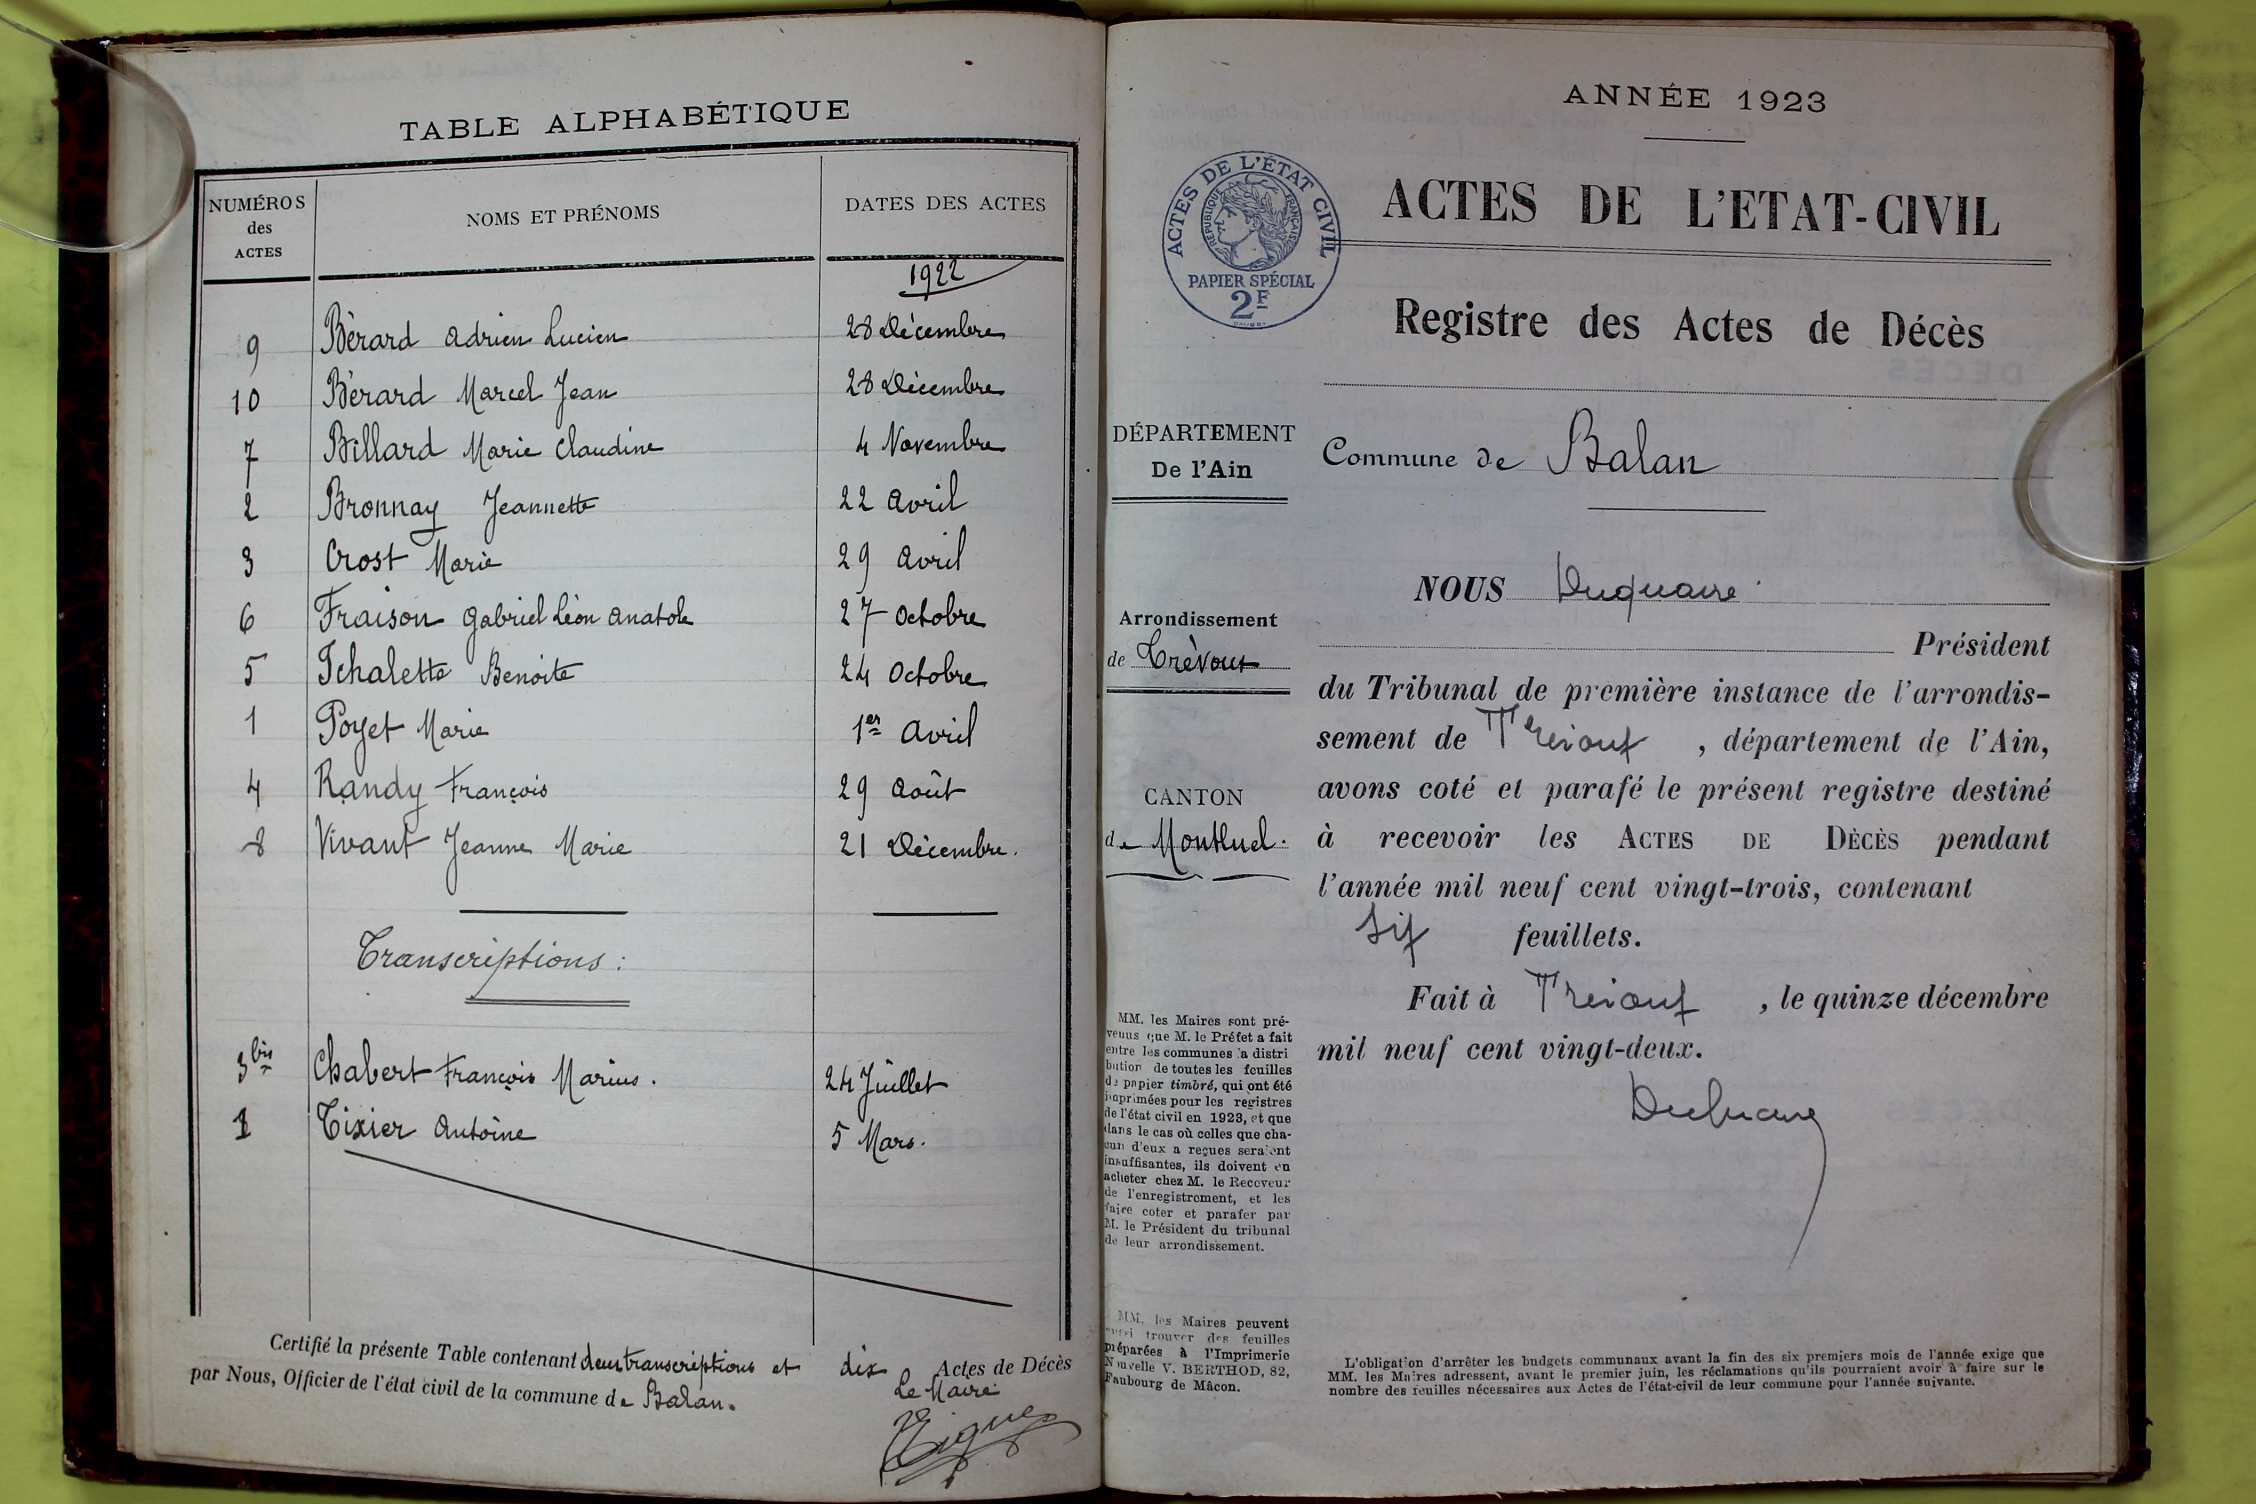 TABLE ALPHABÉTIQUE
NUMÉROS des ACTES
NOMS ET PRÉNOMS
DATES DES ACTES
1922
9 Bérard Adrien Lucien 28 Décembre
10 Bérard Marcel Jean 28 Décembre
7 Billard Marie Claudine 4 Novembre
2 Bronnay Jeannette 22 Avril
3 Crost Marie 29 Avril
6 Fraison Gabriel Léon Anatole 27 Octobre
5 Benoite 24 Octobre
1 Poyet Marie 1er Avril
4 Randy François 29 Août
8 Vivant Jeanne Marie 21 Décembre.
Transcriptions :
3 bis Chabert François Marius. 24 Juillet
1 Tixier Antoine 5 Mars.
Certifié la présente Table contenant deux transcriptions et dix Actes de Décès
par Nous, Officier de l'état civil de la commune de Balan.
Le Maire
ANNÉE 1923
ACTES DE L'ÉTAT CIVIL
RÉPUBLIQUE FRANÇAISE
PAPIER SPÉCIAL
2F
ACTES DE L'ETAT-CIVIL
Registre des Actes de Décès
DÉPARTEMENT
De l'Ain
Commune de Balan
Arrondissement
de Trévoux
CANTON
de Montluel.
NOUS Duquaire
Président
du Tribunal de première instance de l'arrondis-
sement de Trévoux, département de l'Ain,
avons coté et parafé le présent registre destiné
à recevoir les ACTES DE DÉCÈS pendant
l'année mil neuf cent vingt-trois, contenant
six feuillets.
Fait à Trévoux, le quinze décembre
mil neuf cent vingt-deux.
MM. les Maires sont pré-
venus que M. le Préfet a fait
entre les communes la distri
bution de toutes les feuilles
de papier timbré, qui ont été
imprimées pour les registres
de l'état civil en 1923, et que
dans le cas où celles que cha-
cun d'eux a reçues seraient
insuffisantes, ils doivent en
acheter chez M. le Receveur
de l'enregistrement, et les
faire coter et parafer par
M. le Président du tribunal
de leur arrondissement.
MM. les Maires peuvent
aussi trouver des feuilles
préparées à l'Imprimerie
Nouvelle V. BERTHOD, 82,
Faubourg de Mâcon.
L'obligation d'arrêter les budgets communaux avant la fin des six premiers mois de l'année exige que
MM. les Maires adressent, avant le premier juin, les réclamations qu'ils pourraient avoir à faire sur le
nombre des feuilles nécessaires aux Actes de l'état-civil de leur commune pour l'année suivante.